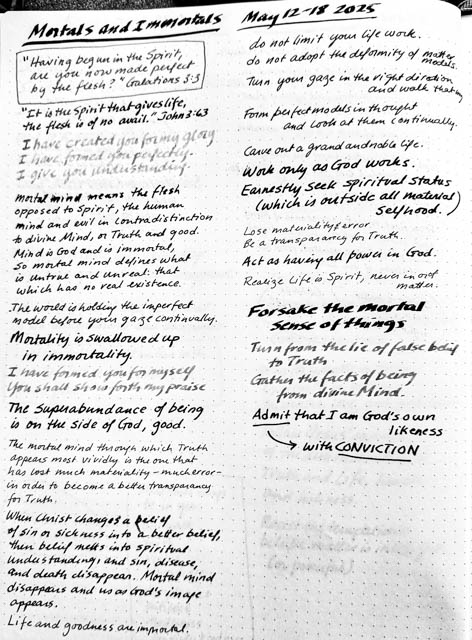 Mortals and Immortals
"Having begun in the Spirit,
are you now made perfect
by the flesh?" Galations 3:3
"It is the Spirit that gives life,
the flesh is of no avail." John 3:63
I have created you for my glory
I have formed you perfectly.
I give you understanding.
mortal mind means the flesh
opposed to Spirit, the human
mind and evil in contradistinction
to divine Mind, or Truth and good.
Mind is God and is immortal,
so mortal mind defines what
is untrue and unreal: that
which has no real existence.
The world is holding the imperfect
model before your gaze continually.
Mortality is swallowed up
in immortality.
I have formed you for myself
You shall show forth my praise
The Superabundance of being
is on the side of God, good.
The mortal mind through which Truth
appears most vividly is the one that
has lost much materiality - much error -
in order to become a better transparency
for Truth.
When Christ changes a belief
of sin or sickness into a better belief,
then belief melts into spiritual
understanding, and sin, disease,
and death disappear. Mortal mind
disappears and us as God's image
appears.
Life and goodness are immortal.
May 12-18 2025
do not limit your life work.
do not adopt the deformity of matter
models.
Turn your gaze in the right direction
and walk that way
Form perfect models in thought
and look at them continually.
Carve out a grand and noble life.
Work only as God works.
Earnestly Seek Spiritual Status
(which is outside all material
selfhood.)
Lose materiality/error
Be a transparancy for Truth.
Act as having all power in God.
Realize Life is Spirit, never in or of
matter.
Forsake the mortal
sense of things
Turn from the lie of false belief
to Truth
Gather the facts of being
from divine Mind.
Admit that I am God's own
likeness
with CONVICTION